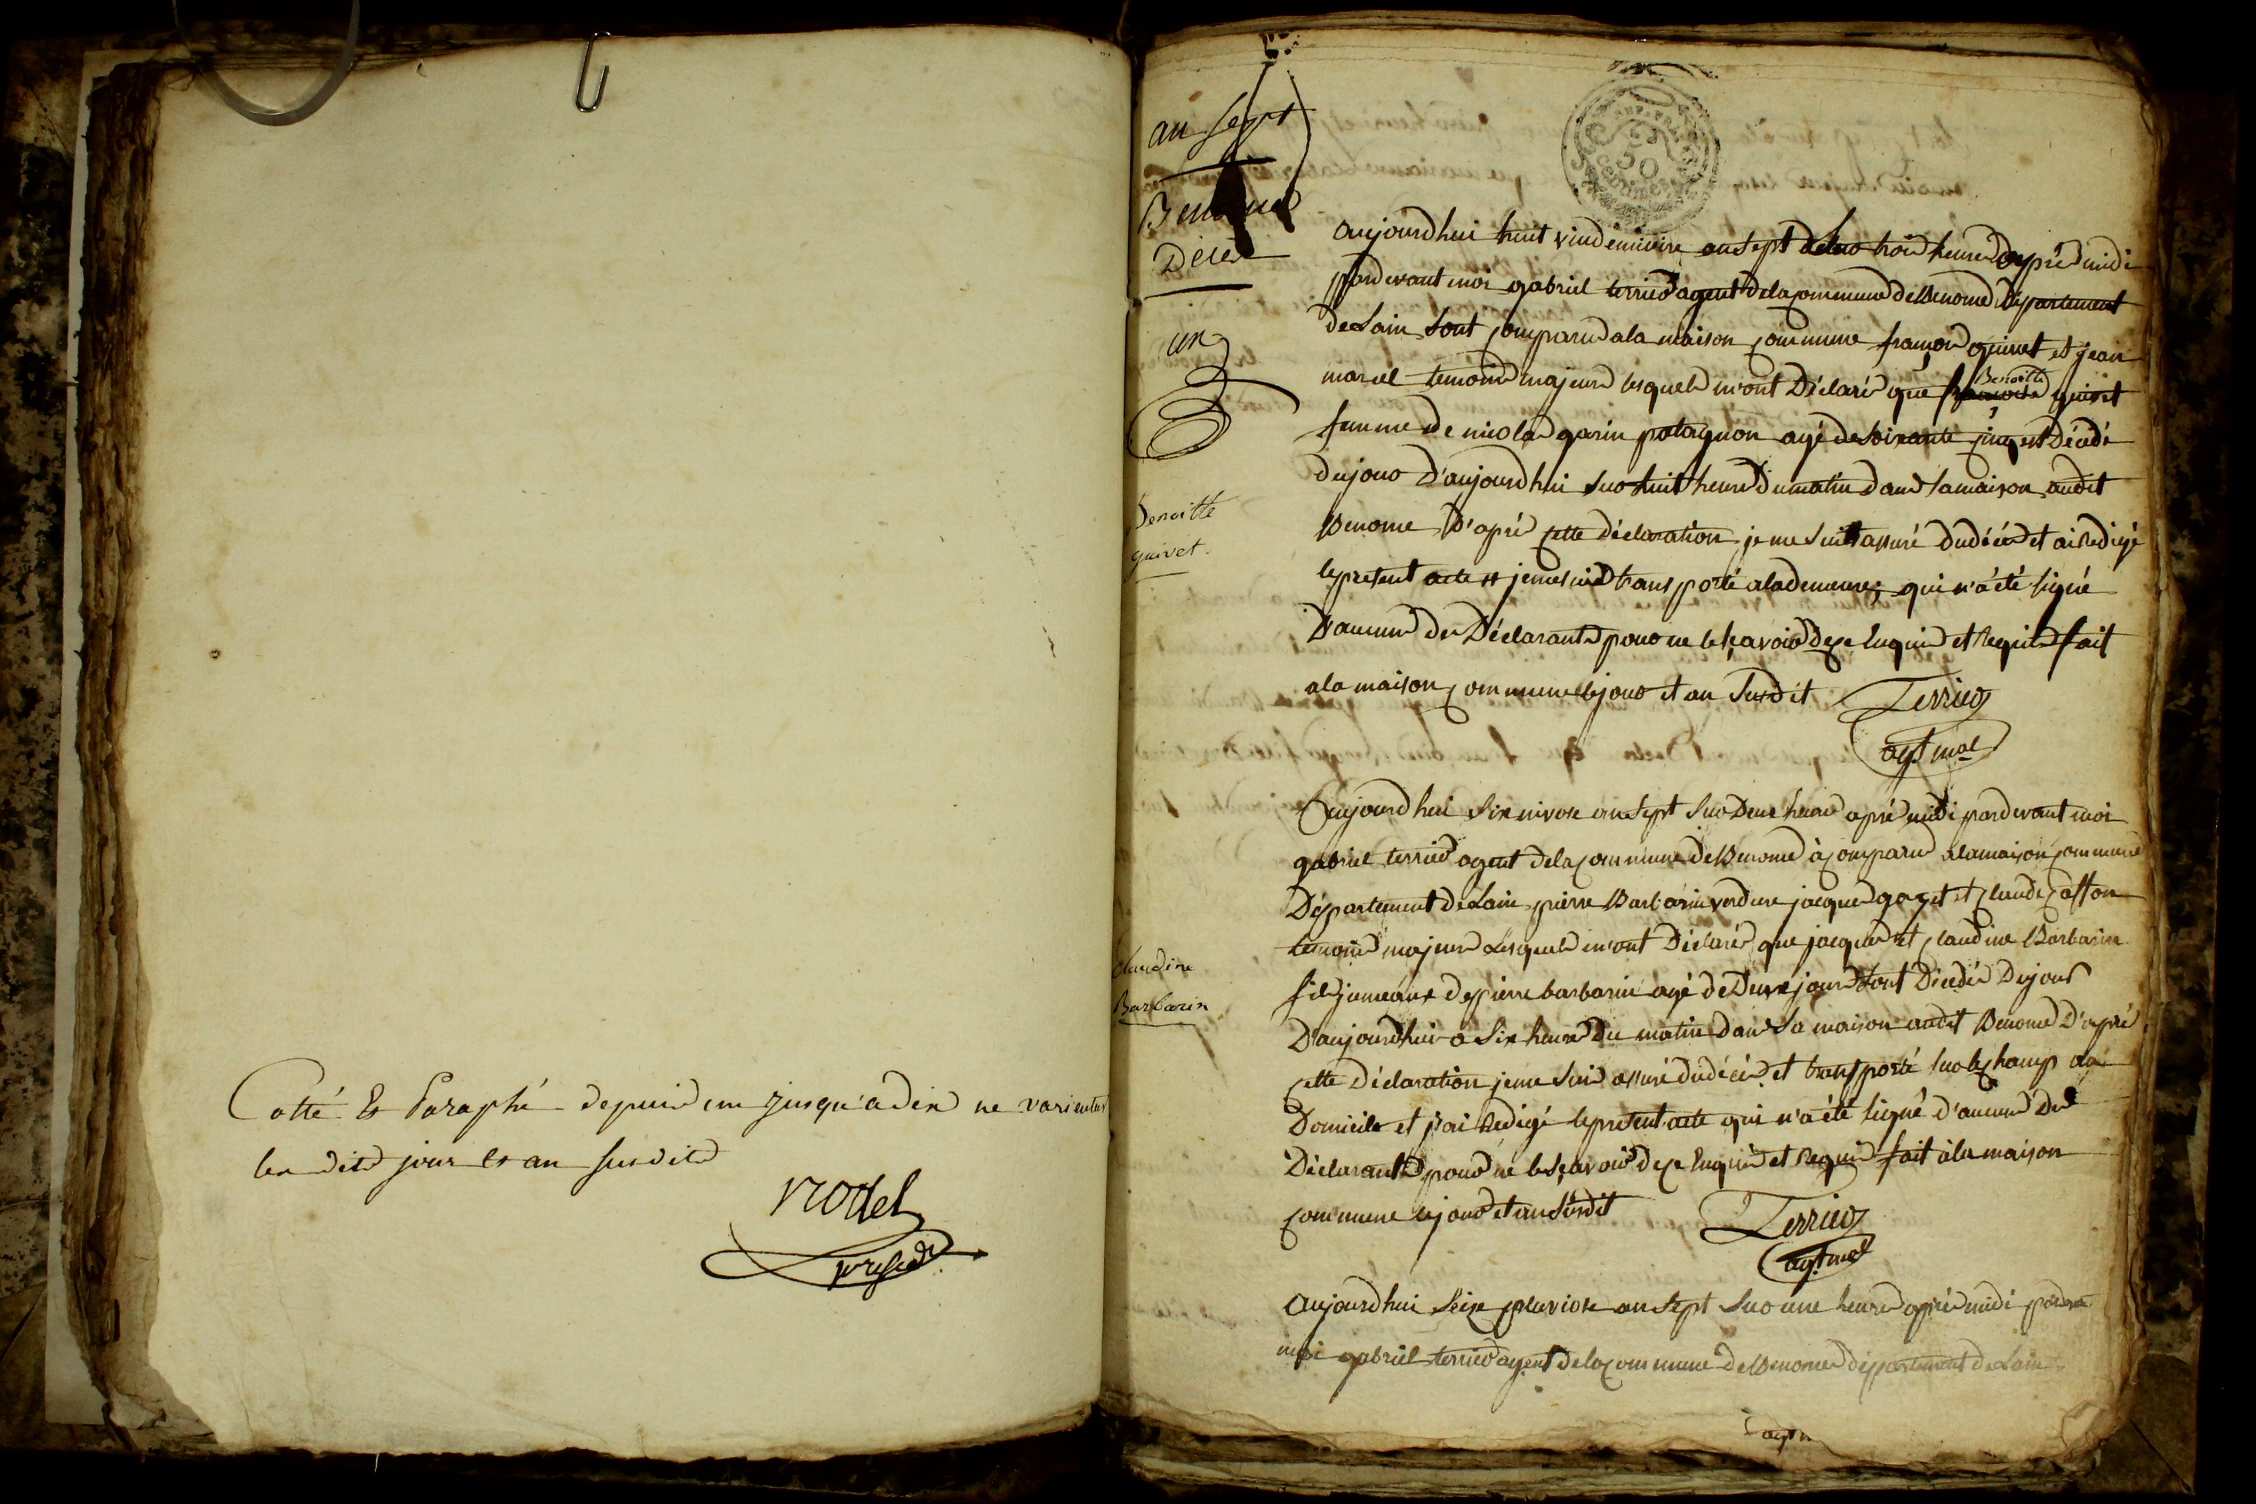 Cotté Et Paraphé depuis un jusqu'a dix ne varietur
les dits jour et an susdits
présid
an sept
Benome
Décès
un
50
centimes
aujourdhui huit vindemiaire an sept trois heures après midi
pardevant moi gabriel terrier agent de la commune de Benome département
de Lain sont comparus a la maison commune françois guivet et jean
morel temoins majeurs lesquels m'ont Déclarés que françoise Benoitte guivet
femme de nicolas garin patagnon agé de soixante cinq est Décédé
du jour D'aujourd'hui sur huit heures du matin dans sa maison audit
Benome D'après cette déclaration je me suis assuré du décès et ai Redigé
le present acte et je me suis transporté a la demeure, qui n'a été signé
D'aucuns des Déclarants pour ne le sçavoir de ce Enquis et Requis fait
a la maison commune le jour et an Susdit
Terrier
agt mal
Benoitte
guivet
aujourdhui six nivose an sept sur Deux heures après midi pardevant moi
gabriel terrier agent de la commune de Benome à comparus a la maison commune
Département de Lain pierre Barbarin verdure jacques gozet et claude
temoins majeurs Lesquels m'ont Déclarés que jacques et claudine Barbarin
fils jumeaux de pierre barbarin agé de Deux jours sont Décédés Du jour
D'aujourdhui a six heures du matin dans sa maison audit Benome D'après
cette déclaration je me suis assuré du décès et transporté sur le champ au
Domicile et j'ai Redigé le present acte qui n'a été signé d'aucuns Des
Déclarants pour ne le sçavoir de ce Enquis et Requis fait à la maison
commune le jour et an Susdit
Terrier
agt mal
Claudine
Barbarin
Aujourdhui seize pluviose an sept sur une heure après midi pardevant
moi gabriel terrier agent de la commune de Benome département de Lain